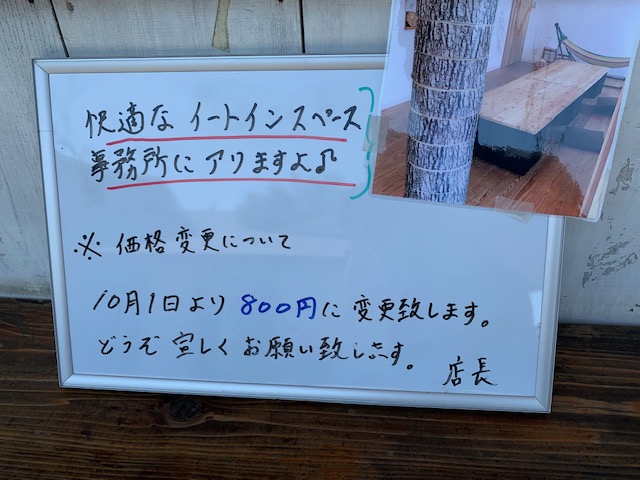 快適な イートインスペース
事務所に アリますよ♪
※ 価格変更について
10月1日より 800円に 変更致します。
どうぞ 宜しく お願い致します。
店長